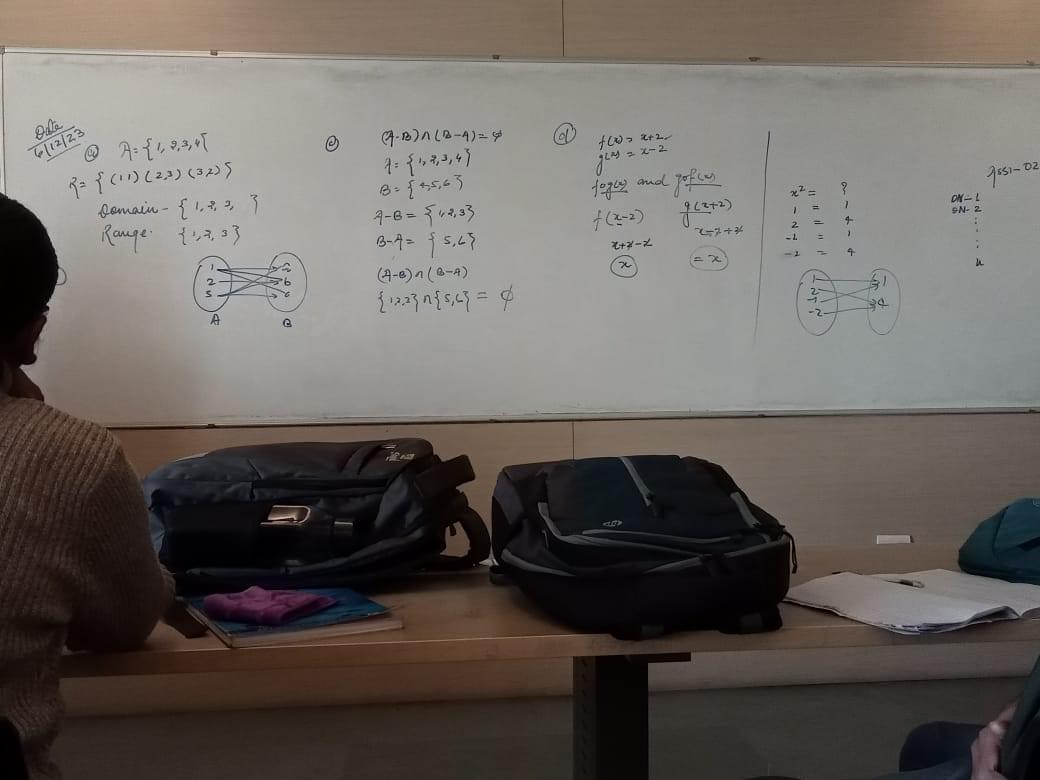 Date
6/12/23
a) A = {1,2,3,4}
R = {(11) (2,3) (3,2)}
Domain - {1,2,3, }
Range. {1,2,3}
1
2
3
b
c
A
B
c) (A-B)∩(B-A) = φ
A = {1,2,3,4}
B = {4,5,6}
A-B = {1,2,3}
B-A = {5,6}
(A-B)∩(B-A)
{1,2,3}∩{5,6} = φ
d) f(x) = x+2
g(x) = x-2
fog(x) and gof(x)
f(x-2)
x+2-2
x
g(x+2)
x-2+2
= x
x² = ?
1 = 1
2 = 4
-1 = 1
-2 = 4
1
2
-1
-2
1
4
ASSI-02
ON-1
SN-2